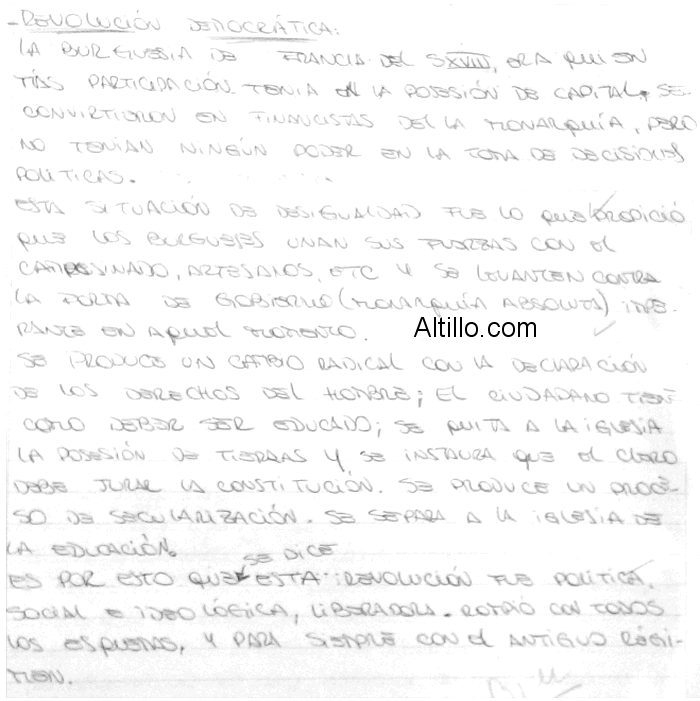 - REVOLUCIÓN DEMOCRÁTICA:
LA BURGUESIA DE FRANCIA DEL SXVIII, ERA QUIEN
MÁS PARTICIPACIÓN TENIA EN LA POSESIÓN DE CAPITAL, SE
CONVIRTIERON EN FINANCISTAS DE LA MONARQUÍA, PERO
NO TENÍAN NINGÚN PODER EN LA TOMA DE DECISIONES
POLITICAS.
ESTA SITUACIÓN DE DESIGUALDAD FUE LO QUE PROPICIÓ
QUE LOS BURGUESES UNAN SUS FUERZAS CON EL
CAMPESINADO, ARTESANOS, ETC Y SE LEVANTEN CONTRA
LA FORMA DE GOBIERNO (MONARQUÍA ABSOLUTA) IMPE-
RANTE EN AQUEL MOMENTO.
Altillo.com
SE PRODUCE UN CAMBIO RADICAL CON LA DECLARACIÓN
DE LOS DERECHOS DEL HOMBRE; EL CIUDADANO TIENE
COMO DEBER SER EDUCADO; SE QUITA A LA IGLESIA
LA POSESIÓN DE TIERRAS Y SE INSTAURA QUE EL CLERO
DEBE JURAR LA CONSTITUCIÓN. SE PRODUCE UN PROCE-
SO DE SECULARIZACIÓN. SE SEPARA A LA IGLESIA DE
LA EDUCACIÓN.
ES POR ESTO QUE SE DICE ESTA REVOLUCIÓN FUE POLÍTICA,
SOCIAL E IDEOLÓGICA, LIBERADORA. ROMPIÓ CON TODOS
LOS ESQUEMAS, Y PARA SIEMPRE CON EL ANTIGUO RÉGI-
MEN.